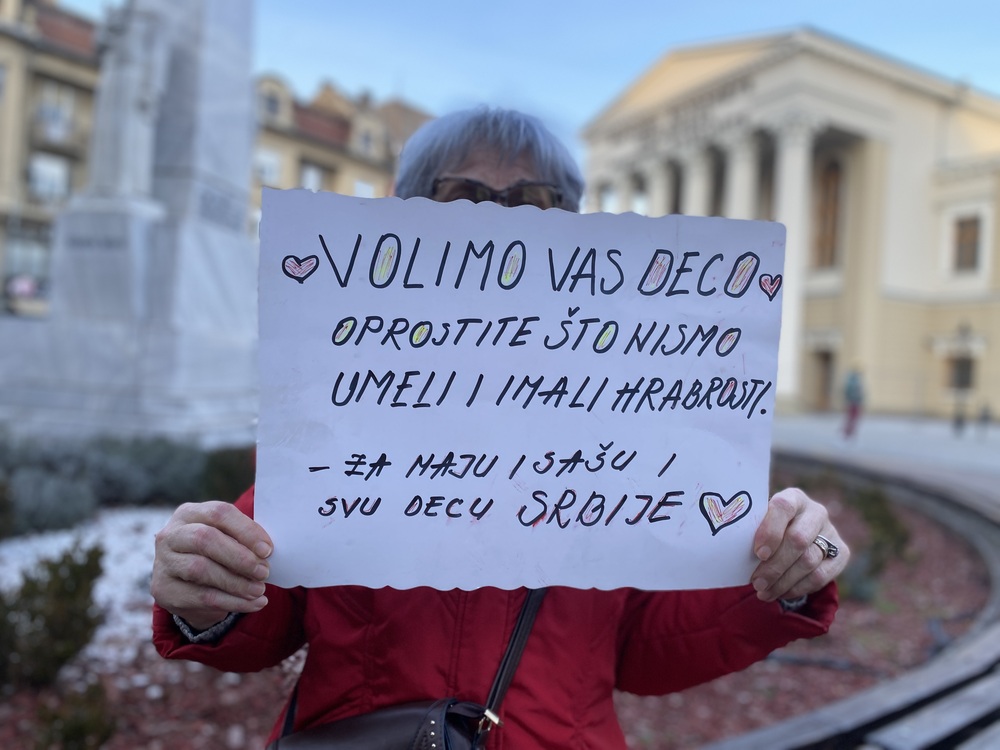 VOLIMO VAS DECO
OPROSTITE ŠTO NISMO
UMELI I IMALI HRABROSTI.
- ZA MAJU I SAŠU I
SVU DECU SRBIJE